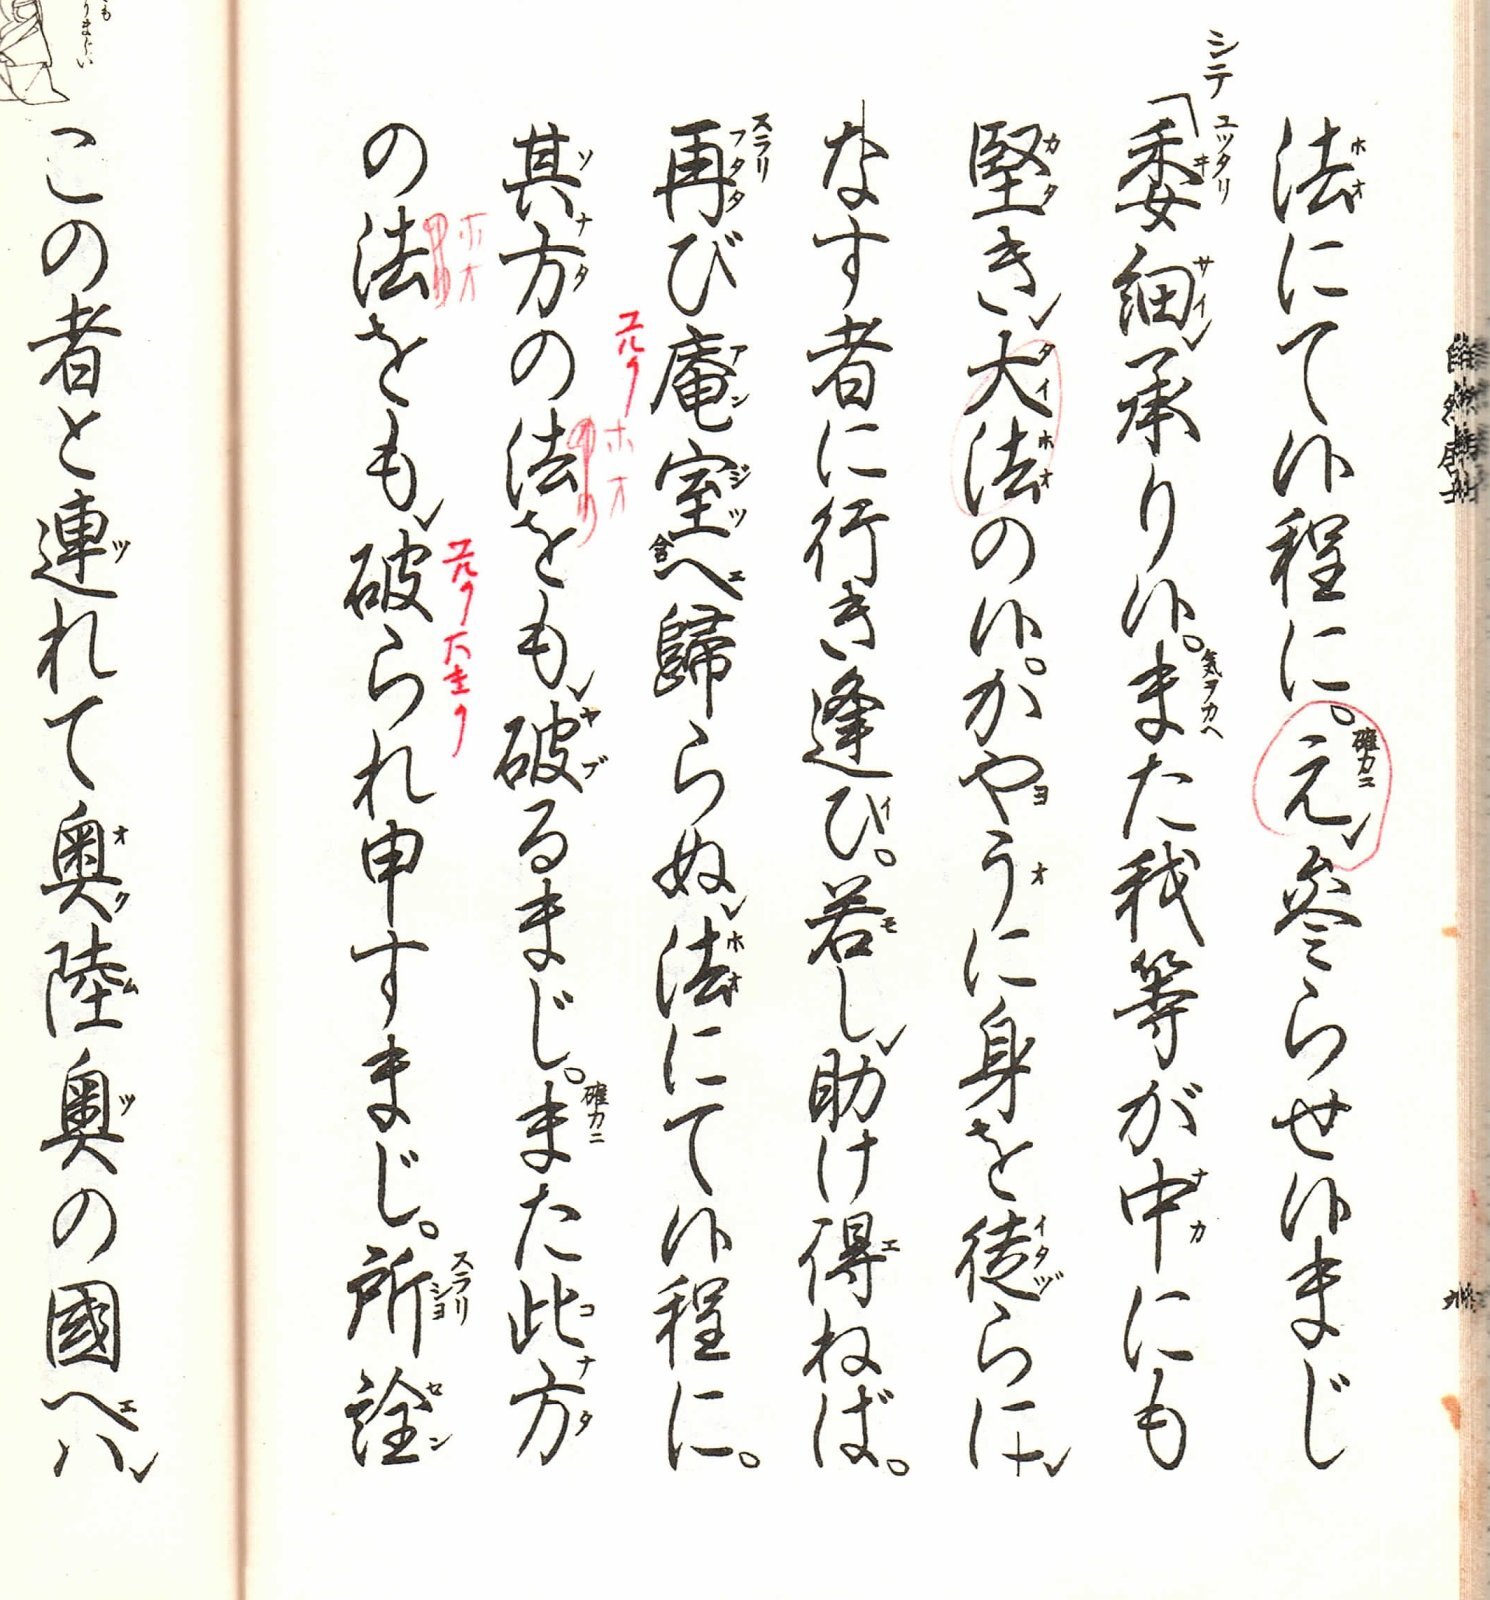 法にて候程に。え參らせ候まじ
シテ「委細承り候。また我等が中にも
堅き大法の候。かやうに身を徒らに
なす者に行き逢ひ。若し助け得ねば。
再び庵室へ歸らぬ法にて候程に。
其方の法をも破るまじ。また此方
の法をも破られ申すまじ。所詮
この者と連れて奥陸奥の國へハ